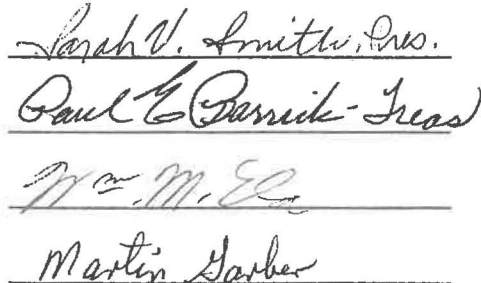 Sarah V. Smith, Pres.
Paul E Barrick - Treas
Wm. M.
Martin Garber